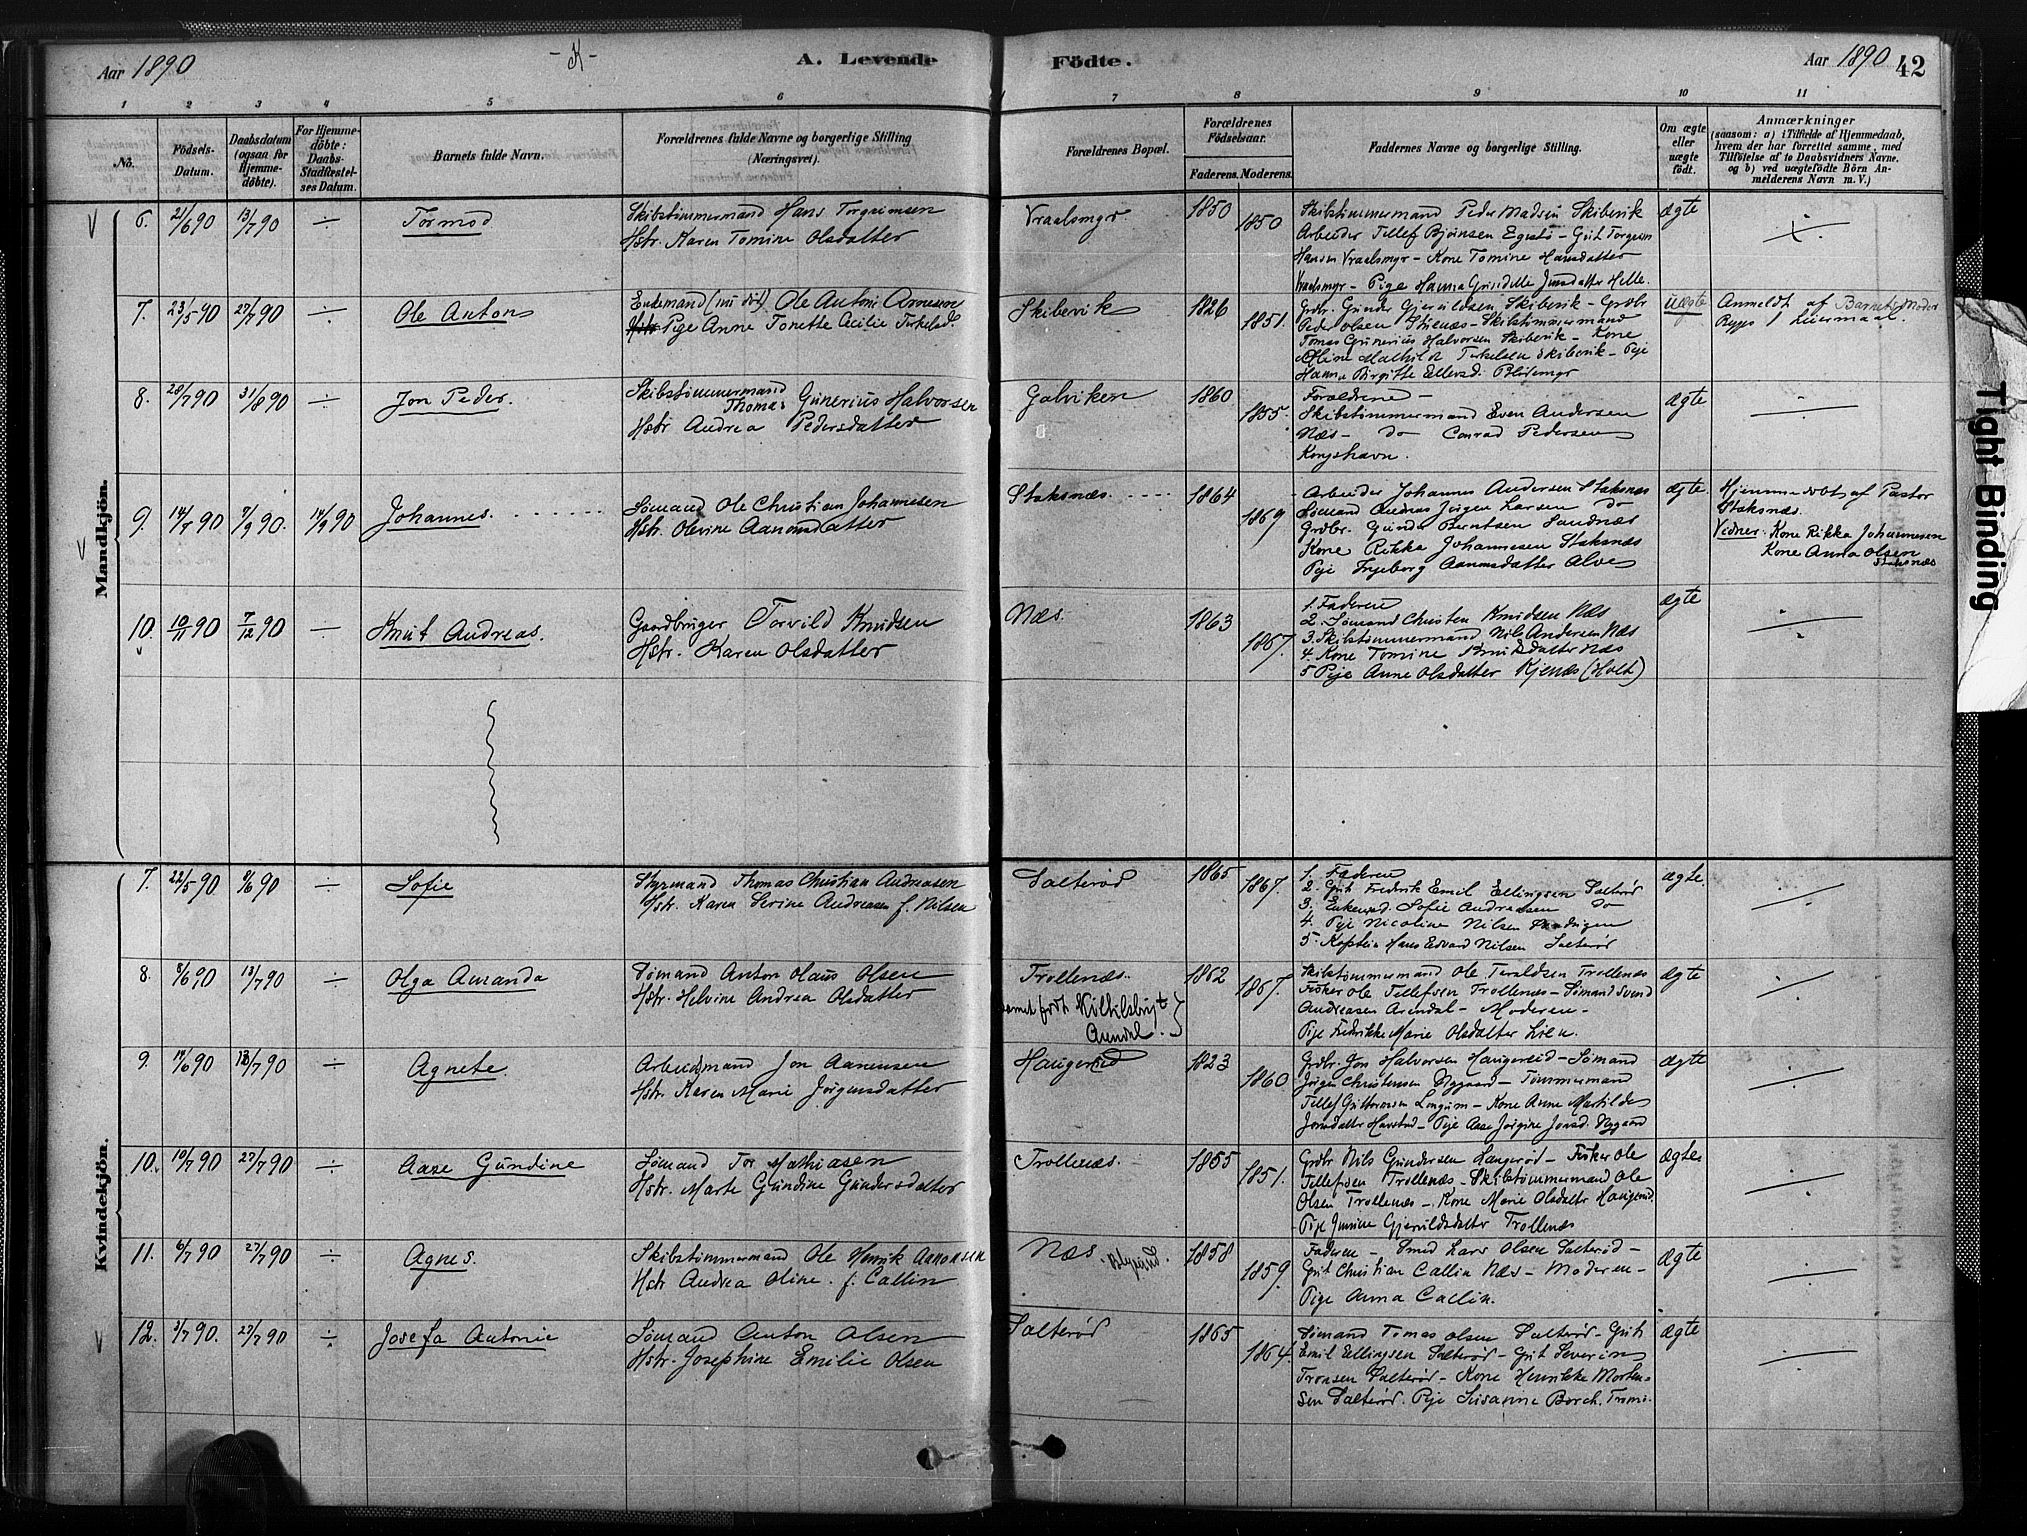 Aar 1890
-K-
A. Levende
Födte.
Aar 1890
42
1 2 3 4 5 6 7 8 9 10 11
No.
Födsels-Datum.
Daabsdatum (ogsaa for Hjemme-döbte).
For Hjemme-döbte: Daabs-Stadfæstel-ses Datum.
Barnets fulde Navn.
Forældrenes fulde Navne og borgerlige Stilling (Næringsvei).
Forældrenes Bopæl.
Forældrenes Födselsaar.
Faderens. Moderens.
Faddernes Navne og borgerlige Stilling.
Om ægte eller uægte födt.
Anmærkninger
(saasom: a) i Tilfælde af Hjemmedaab, hvem der har forrettet samme, med Tilföielse af to Daabsvidners Navne. og b) ved uægtefödte Börn An-melderens Navn m. V.)
Mandkjön.
6. 21/6 90 13/7 90 ÷ Tormod
Skibstømmermand Hans Torgrimsen
Hstr. Karen Tomine Olsdatter
Vraalsmyr 1850 1850
Skibstømmermand Peder Madsen Skibevik
Arbeider Tellef Bjørnsen
Hansen Vraalsmyr - Kone Tomine Hansdatter
Vraalsmyr - Pige Hanna Jensdatter Helle
ægte ÷
7. 23/5 90 27/7 90 ÷ Ole Anton
Enkemand (nu død) Ole Anton Arnesen
Pige Anne Tonette Cecilie Terkelsd.
Skibevik 1826 1851.
Grdbr. Gunder Gjeruldsen Skibevik - Grdbr
Peder Olsen - Skibstømmermand
Tomas Gunerius Halvorsen Skibevik - Kone
Oline Mathilde Terkelsen Skibevik - Pige
Hanna Birgitte Ellefsd.
uægte
Anmeldt af Barnets Moder
Begges 1 Leiermaal.
8. 28/7 90 31/8 90 ÷ Jon Peder.
Skibstømmermand
Thomas Gunerius Halvorsen
Hstr Andrea Pedersdatter
Galviken 1860 1855.
Forældrene -
Skibstømmermand Even Andersen
Næs - Do Conrad Pedersen
Kongshavn.
ægte ÷
9. 14/7 90 7/9 90. 14/9 90 Johannes.
Sømand Ole Christian Johannesen
Hstr. Olevine Aanonsdatter
Staksnæs. 1864 1869
Arbeider Johannes Andersen Staksnæs
Sømand Andreas Jørgen Larsen Do
Grdbr. Gunder Berntsen Sandnæs
Kone Rikka Johannesen Staksnæs
Pige Ingeborg Aanonsdatter Alve
ægte
Hjemmedøbt af Pastor
Staksnæs.
Vidner: Kone Rikka Johannesen
Kone Anna Olsen
Staksnæs
10. 10/11 90 7/12 90 - Knut Andreas.
Gaardbruger Torvild Knudsen
Hstr. Karen Olsdatter
Næs. 1863 1867.
1. Faderen
2. Sømand Christen Knudsen Næs
3. Skibstømmermand Nils Andersen Næs
4. Kone Tomine Knudsdatter Næs
5 Pige Anne Olsdatter Kjenæs (Holt)
ægte ÷
Kvindekjön.
7. 22/5 90 8/6 90 ÷ Sofie
Styrmand Thomas Christian Andreasen
Hstr. Karen Serine Andreasen f. Nilsen
Salterød 1865 1867.
1. Faderen
2. Gut Fredrik Emil Ellingsen Salterød
3. Enkemd. Sofie Andreasen Do
4. Pige Nicoline Nilsen
5. Kaptein Hans Edvard Nilsen Salterød
ægte. ÷
8. 8/6 90 13/7 90 ÷ Olga Amanda
Sømand Anton Olaus Olsen
Hstr. Helvine Andrea Olsdatter
Trollenæs.
Barnet født
Arendal.
1862 1867.
Skibstømmermand Ole Teraldsen Trollenæs
Fisker Ole Tellefsen Trollenæs - Sømand Svend
Andreasen Arendal - Moderen -
Pige Fredrikke Marie Olsdatter Løen.
ægte ÷
9. 14/6 90 13/7 90 ÷ Agnete.
Arbeidsmand Jon Aanensen
Hstr. Karen Marie Jørgensdatter
Haugereid 1823 1860
Grdbr. Jon Halvorsen Haugereid - Sømand
Jørgen Christensen Nygaard - Tømmermand
Tellef Guttormsen Longum - Kone Anne Martilde
Jonsdatter Havstad - Pige Aase Jørgine Jonsd. Nygaard
ægte ÷
10. 10/7 90 27/7 90 ÷ Aase Gundine
Sømand Tor Mathiasen
Hstr. Marte Gundine Gundersdatter
Trollenæs. 1855 1851.
Grdbr Nils Gundersen Langerød - Fisker Ole
Tellefsen Trollenæs - Skibstømmermand Ole
Olsen Trollenæs - Kone Marie Olsdattr Haugereid
Pige Gjeruldsdatter Trollenæs
ægte. ÷
11. 6/7 90 27/7 90 ÷ Agnes.
Skibstømmermand Ole Henrik Aanonsen
Hstr Andrea Oline. f. Callin
Næs 1858 1859.
Faderen - Smed Lars Olsen Salterød -
Gut Christian Callin Næs - Moderen -
Pige Anna Callin.
ægte ÷
12. 3/7 90. 27/7 90 ÷ Josefa Antonie
Sømand Anton Olsen
Hstr. Josephine Emilie Olsen
Salterød 1865 1864.
Sømand Tomas Olsen Salterød - Gut
Emil Ellingsen Salterød - Gut Severin
Tronsen Salterød - Kone Henrikke Morten-
sen Salterød. Pige Susanne Borch. Tromø.
ægte ÷
Tight Binding